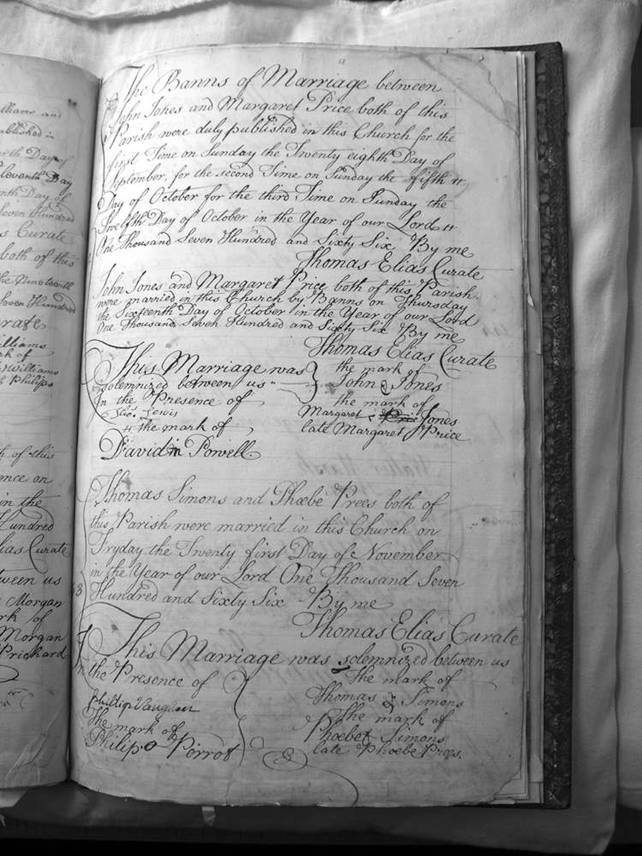 lliams and
published in
rth Day
Eleventh Day
nth Day of
Seven Hundred
s Curate
both of this
the Nineteenth
Seven Hundred
urate
illiams
rk of
Williams
Philips
of this
ence on
in the
Hundred
lias Curate
tween us
Morgan
rk of
Morgan
Prichard
The Banns of Marriage between
John Jones and Margaret Price both of this
Parish were duly published in this Church for the
first Time on Sunday the Twenty eighth Day of
September, for the second Time on Sunday the fifth
Day of October for the third Time on Sunday the
Twelfth Day of October in the Year of our Lord
One Thousand Seven Hundred and Sixty Six By me
Thomas Elias Curate
John Jones and Margaret Price both of this Parish
were married in this Church by Banns on Thursday
the Sixteenth Day of October in the Year of our Lord
One Thousand Seven Hundred and Sixty Six By me
Thomas Elias Curate
This Marriage was
solemnized between us
the mark of
John Jones
in the Presence of
Lewis
the mark of
Margaret Price Jones
late Margaret Price
the mark of
David Powell
Thomas Simons and Phœbe Prees both of
this Parish were married in this Church on
Fryday the Twenty first Day of November
in the Year of our Lord One Thousand Seven
Hundred and Sixty Six By me
Thomas Elias Curate
This Marriage was solemnized between us
in the Presence of
the mark of
Thomas Simons
Phillip Vaughan
the mark of
Phœbe Simons
late Phœbe Prees.
The mark of
Philip o Perrot